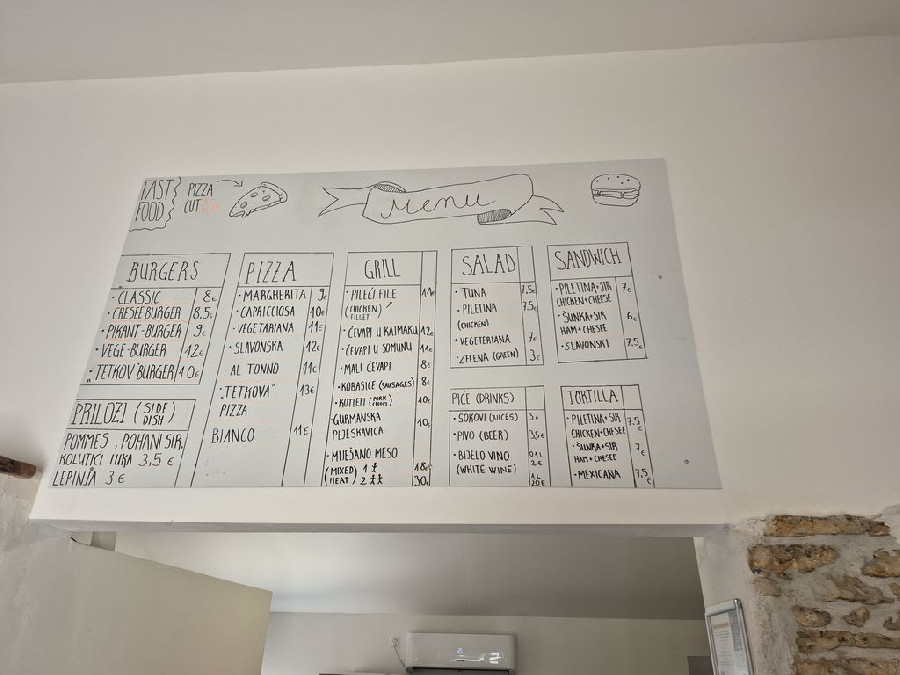 FAST
FOOD
PIZZA
CUT
Menu
BURGERS
· CLASSIC 8€
· CHEESEBURGER 8,5€
· PIKANT-BURGER 9€
· VEGE-BURGER 12€
· "TETKOV" BURGER 10€
PRILOZI (SIDE DISH)
POMMES, POHANI SIR,
KOLUTIĆI LUKA 3,5 €
LEPINJA 3 €
PIZZA
· MARGHERITA 9€
· CAPRICCIOSA 10€
· VEGETARIANA 11€
· SLAVONSKA 12€
AL TONNO 11€
"TETKOVA" 13€
PIZZA
BIANCO 11€
GRILL
· PILEĆI FILE 11€
(CHICKEN)
FILLET
· ĆEVAPI U KAJMAKU 12€
· ĆEVAPI U SOMUNU 11€
· MALI ĆEVAPI 8€
· KOBASICE (SAUSAGES) 8€
· KOTLETI (PORK CHOPS) 10€
GURMANSKA 10€
PLJESKAVICA
· MIJEŠANO MESO
(MIXED 1 18€
MEAT) 2 30€
SALAD
· TUNA 7,5€
· PILETINA 7,5€
(CHICKEN)
· VEGETERIANA 7€
ZELENA (GREEN) 3€
PIĆE (DRINKS)
· SOKOVI (JUICES) 3€
· PIVO (BEER) 3,5€
· BIJELO VINO 0,1l
(WHITE WINE) 2€
1L
20€
SANDWICH
· PILETINA+SIR 7€
CHICKEN+CHEESE
· ŠUNKA+SIR 6€
HAM+CHEESE
· SLAVONSKI 7,5€
TORTILLA
· PILETINA+SIR 7,5€
CHICKEN+CHEESE
· ŠUNKA+SIR 7€
HAM+CHEESE
· MEXICANA 7,5€